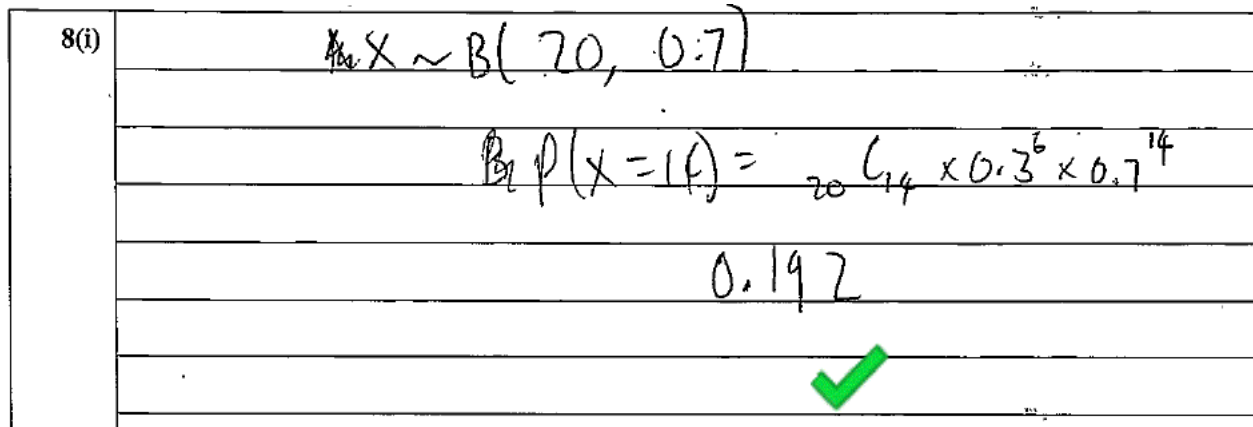 8(i)
X ~ B( 20, 0.7)
P(X = 14) = ₂₀C₁₄ × 0.3⁶ × 0.7¹⁴
0.192